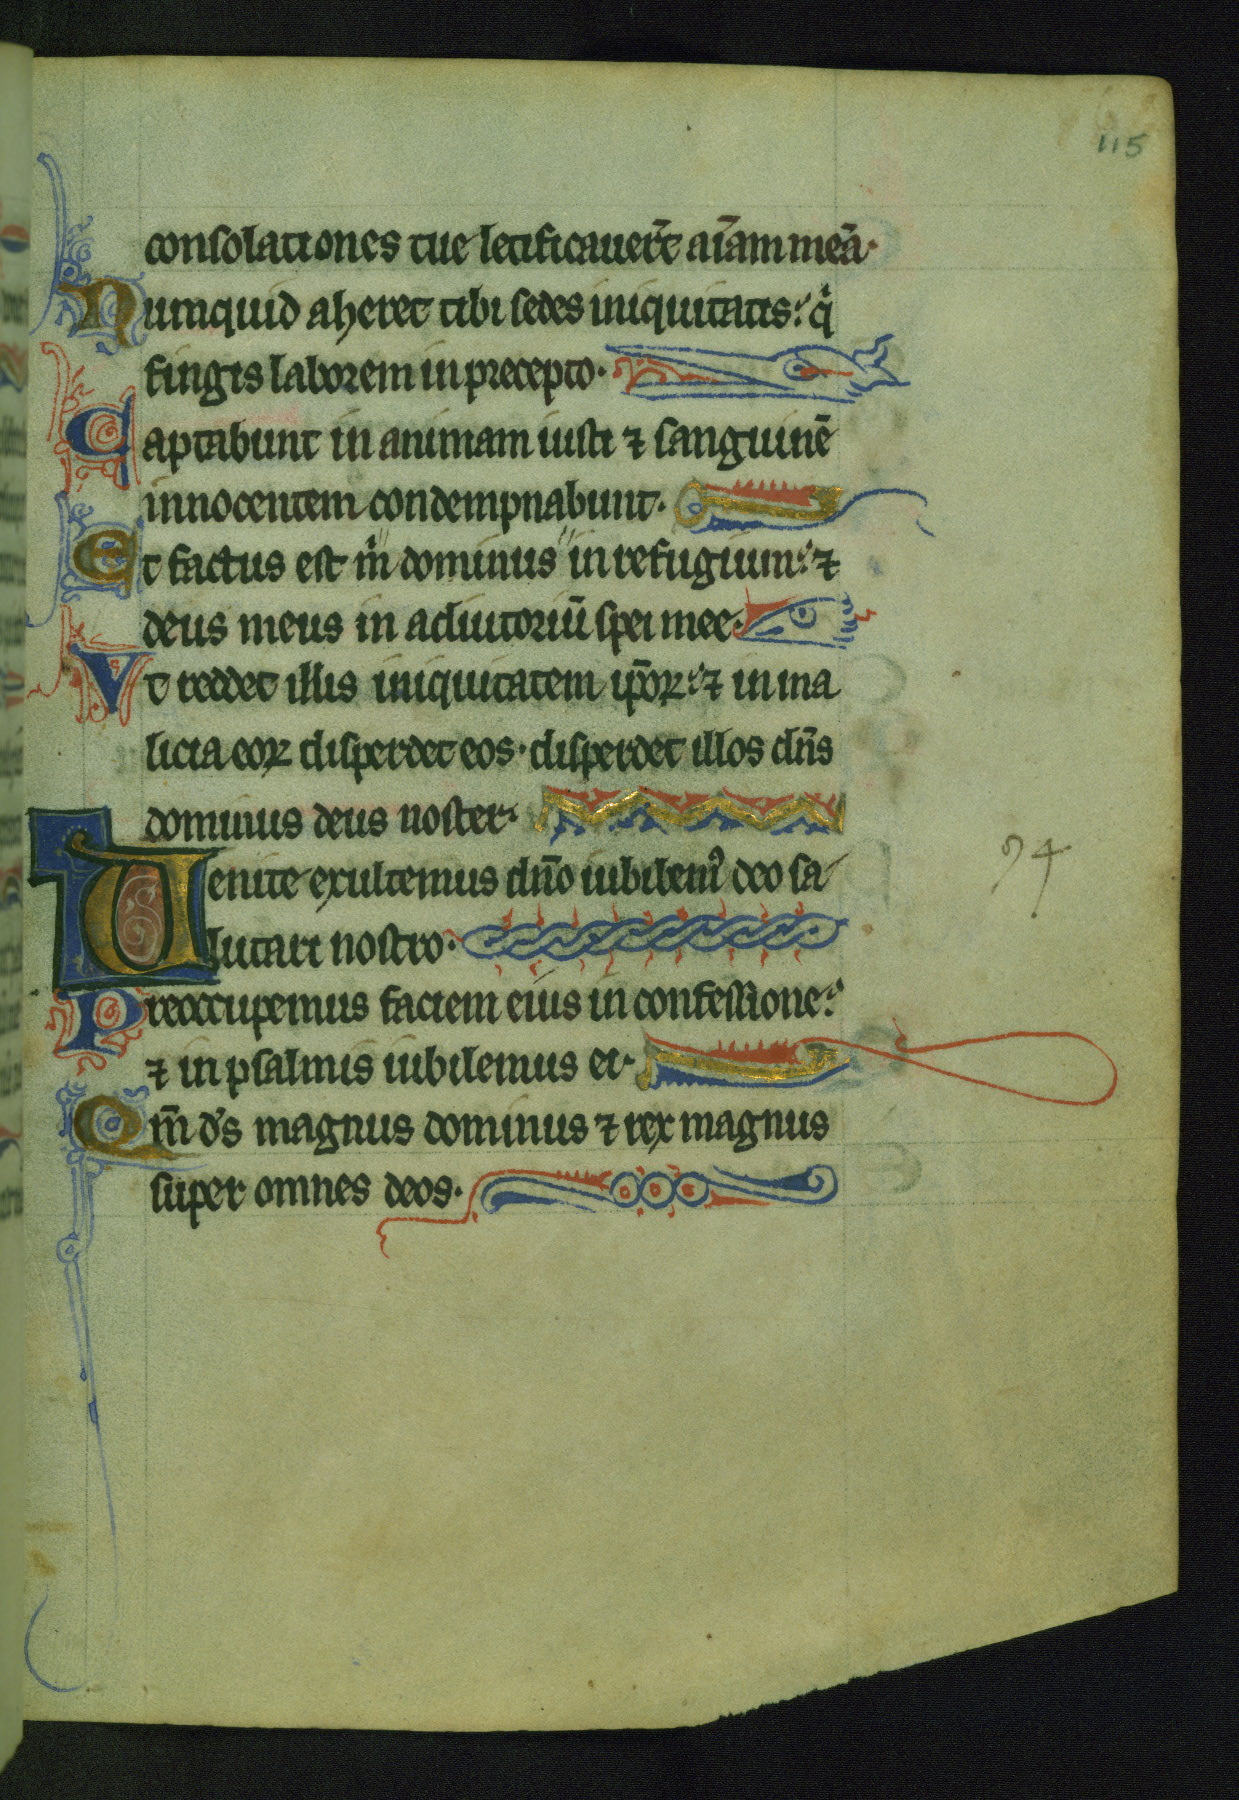 115
consolationes tue letificauer̄t aīam meā·
Numquid aheret tibi sedes iniquitatis: q̇
fingis laborem in precepto·
Captabunt in animam iusti ⁊ sanguinē
innocentem condempnabunt·
Et factus est ṁ dominus in refugium: ⁊
deus meus in adiutoriū spei mee·
Vt reddet illis iniquitatem ip̄oꝝ: ⁊ in ma
licia eoꝝ disperdet eos· disperdet illos dn̄s
dominus deus noster·
94
Uenite exultemus dn̄o iubilemꝰ deo sa
lutari nostro·
Preoccupemus faciem eius in confessione:
⁊ in psalmis iubilemus ei·
Qm̄ d̓s magnus dominus ⁊ rex magnus
super omnes deos·